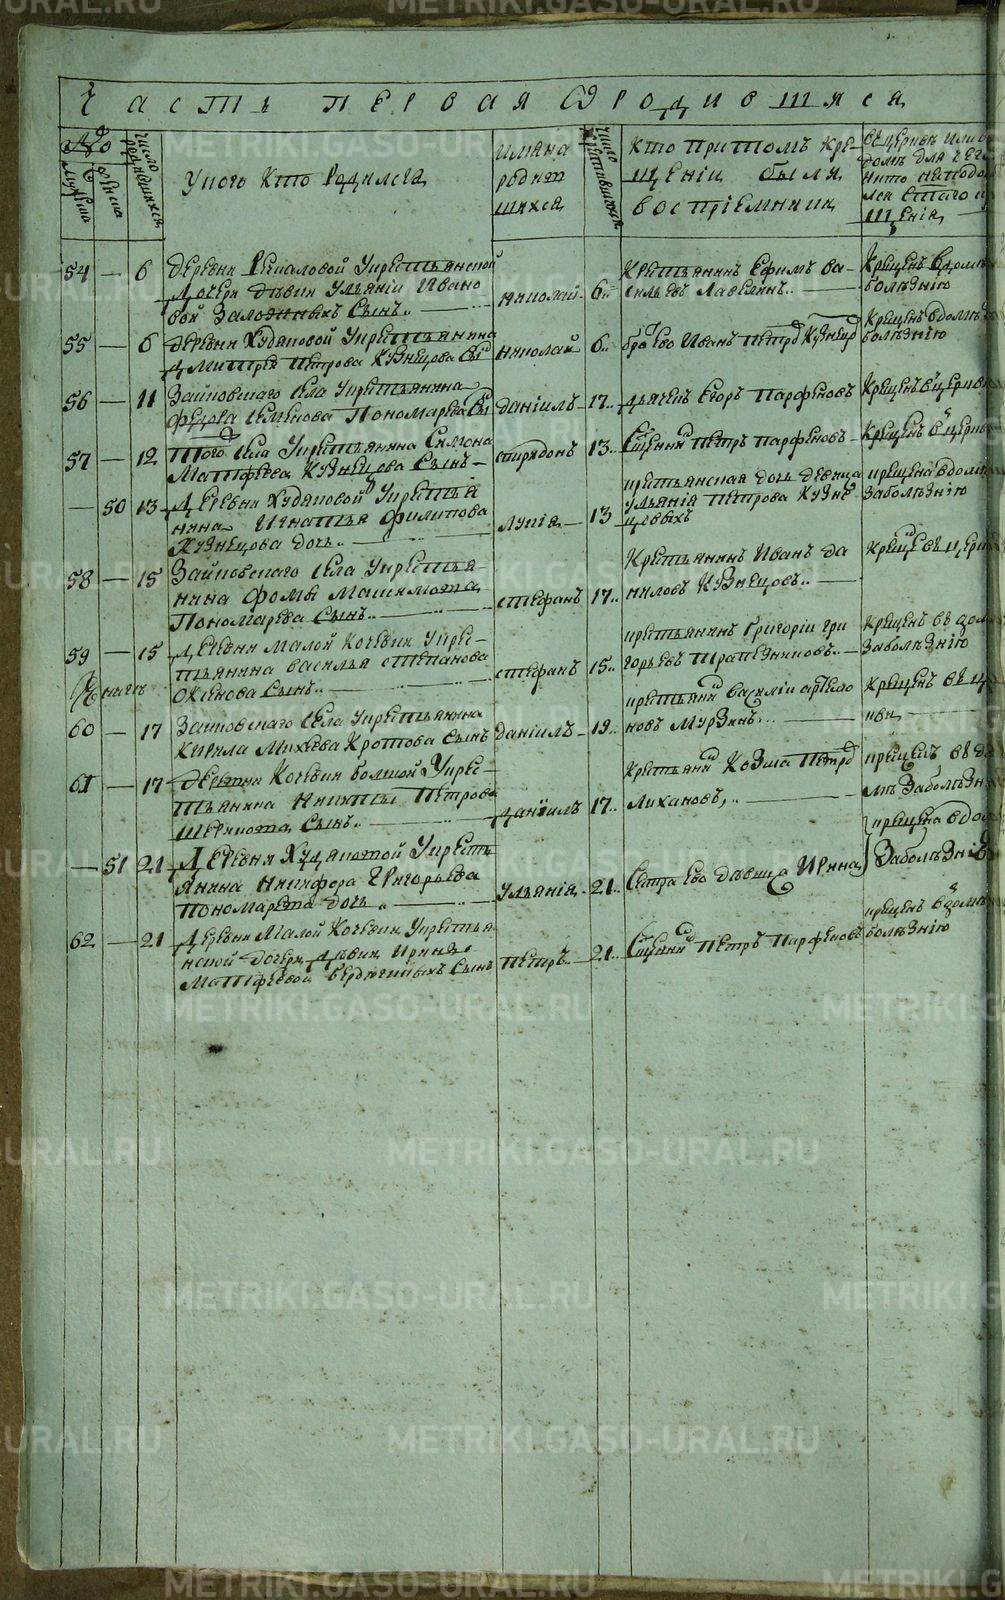 Часть первая О родившихся
№
мужеска
женска
число родившихся
У кого кто родился
имяна
родив
шихся
число крестившихся
кто при томъ кре
щеніи были
воспріемники
въ церкве или въ
домъ для чего
щенія
54 — 6 деревни Ремаловой у крестьянской
дочери дѣвки Ульяніи Ивано
вой Заложныхъ сынъ..
николай 6..
крестьянинъ Ефимъ Ва-
сильевъ
крещенъ в домѣ
болѣзнію
55 — 6 деревни Худяковой у крестьянина
дмитрея петрова Кузнецова
николай 6..
братъ ево Иванъ Петровъ Кузнецовъ
крещенъ в домѣ
болѣзнію
56 — 11 Зайковскаго села у крестьянина
федора семенова Пономарева
даніилъ 17..
дьячекъ Егоръ Парфеновъ
крещенъ в церкви
57 — 12 того села у крестьянина Симона
Матфеева Кузнецова сынъ
спиридонъ 13..
Священникъ петръ парфеновъ
крещенъ в церкви
— 50 13 деревни Худяковой у крестья
нина Игнатья филипова
Кузнецова дочь..
лукія 13
крестьянская дочь девица
ульянія петрова кузне
цовыхъ
крещена в доме
за болѣзнію
58 — 15 Зайковскаго села у крестья-
нина фомы Максимова
Пономарева сынъ..
стефанъ 17..
крестьянинъ Иванъ да
ниловъ кузнецовъ..
крещенъ въ церкви
59 — 15 деревни Малой Кочевки у крес-
тьянина василья степанова
оксенова сынъ..
стефанъ 15..
крестьянинъ григорій гри
горьевъ трапезниковъ..
крещенъ въ доме
за болѣзнію
60 — 17 Зайковскаго села у крестьянина
кирила михеева Кротова сынъ
даніилъ 19..
крестьянинъ василій артемо
новъ мурзинъ..
крещенъ въ це
ркви
61 — 17 деревни Кочевки большой у крес-
тьянина никиты петрова
сынъ..
даніилъ 17..
крестьянинъ козма петровъ
лихановъ,..
крещенъ въ до
мѣ за болѣзнію
— 51 21 деревни Худяковой у кресть
янина никифора григорьева
пономарева дочь
ульянія 21..
сестра ево дѣвица Ирина
крещена в доме
за болѣзнію
62 — 21 деревни малой Кочевки у крестья
нской дочери дѣвки ирины
матфеевой бердюгиныхъ сынъ
петръ 21..
Священникъ петръ парфеновъ
крещенъ в домѣ
болѣзнію
METRIKI.GASO-URAL.RU